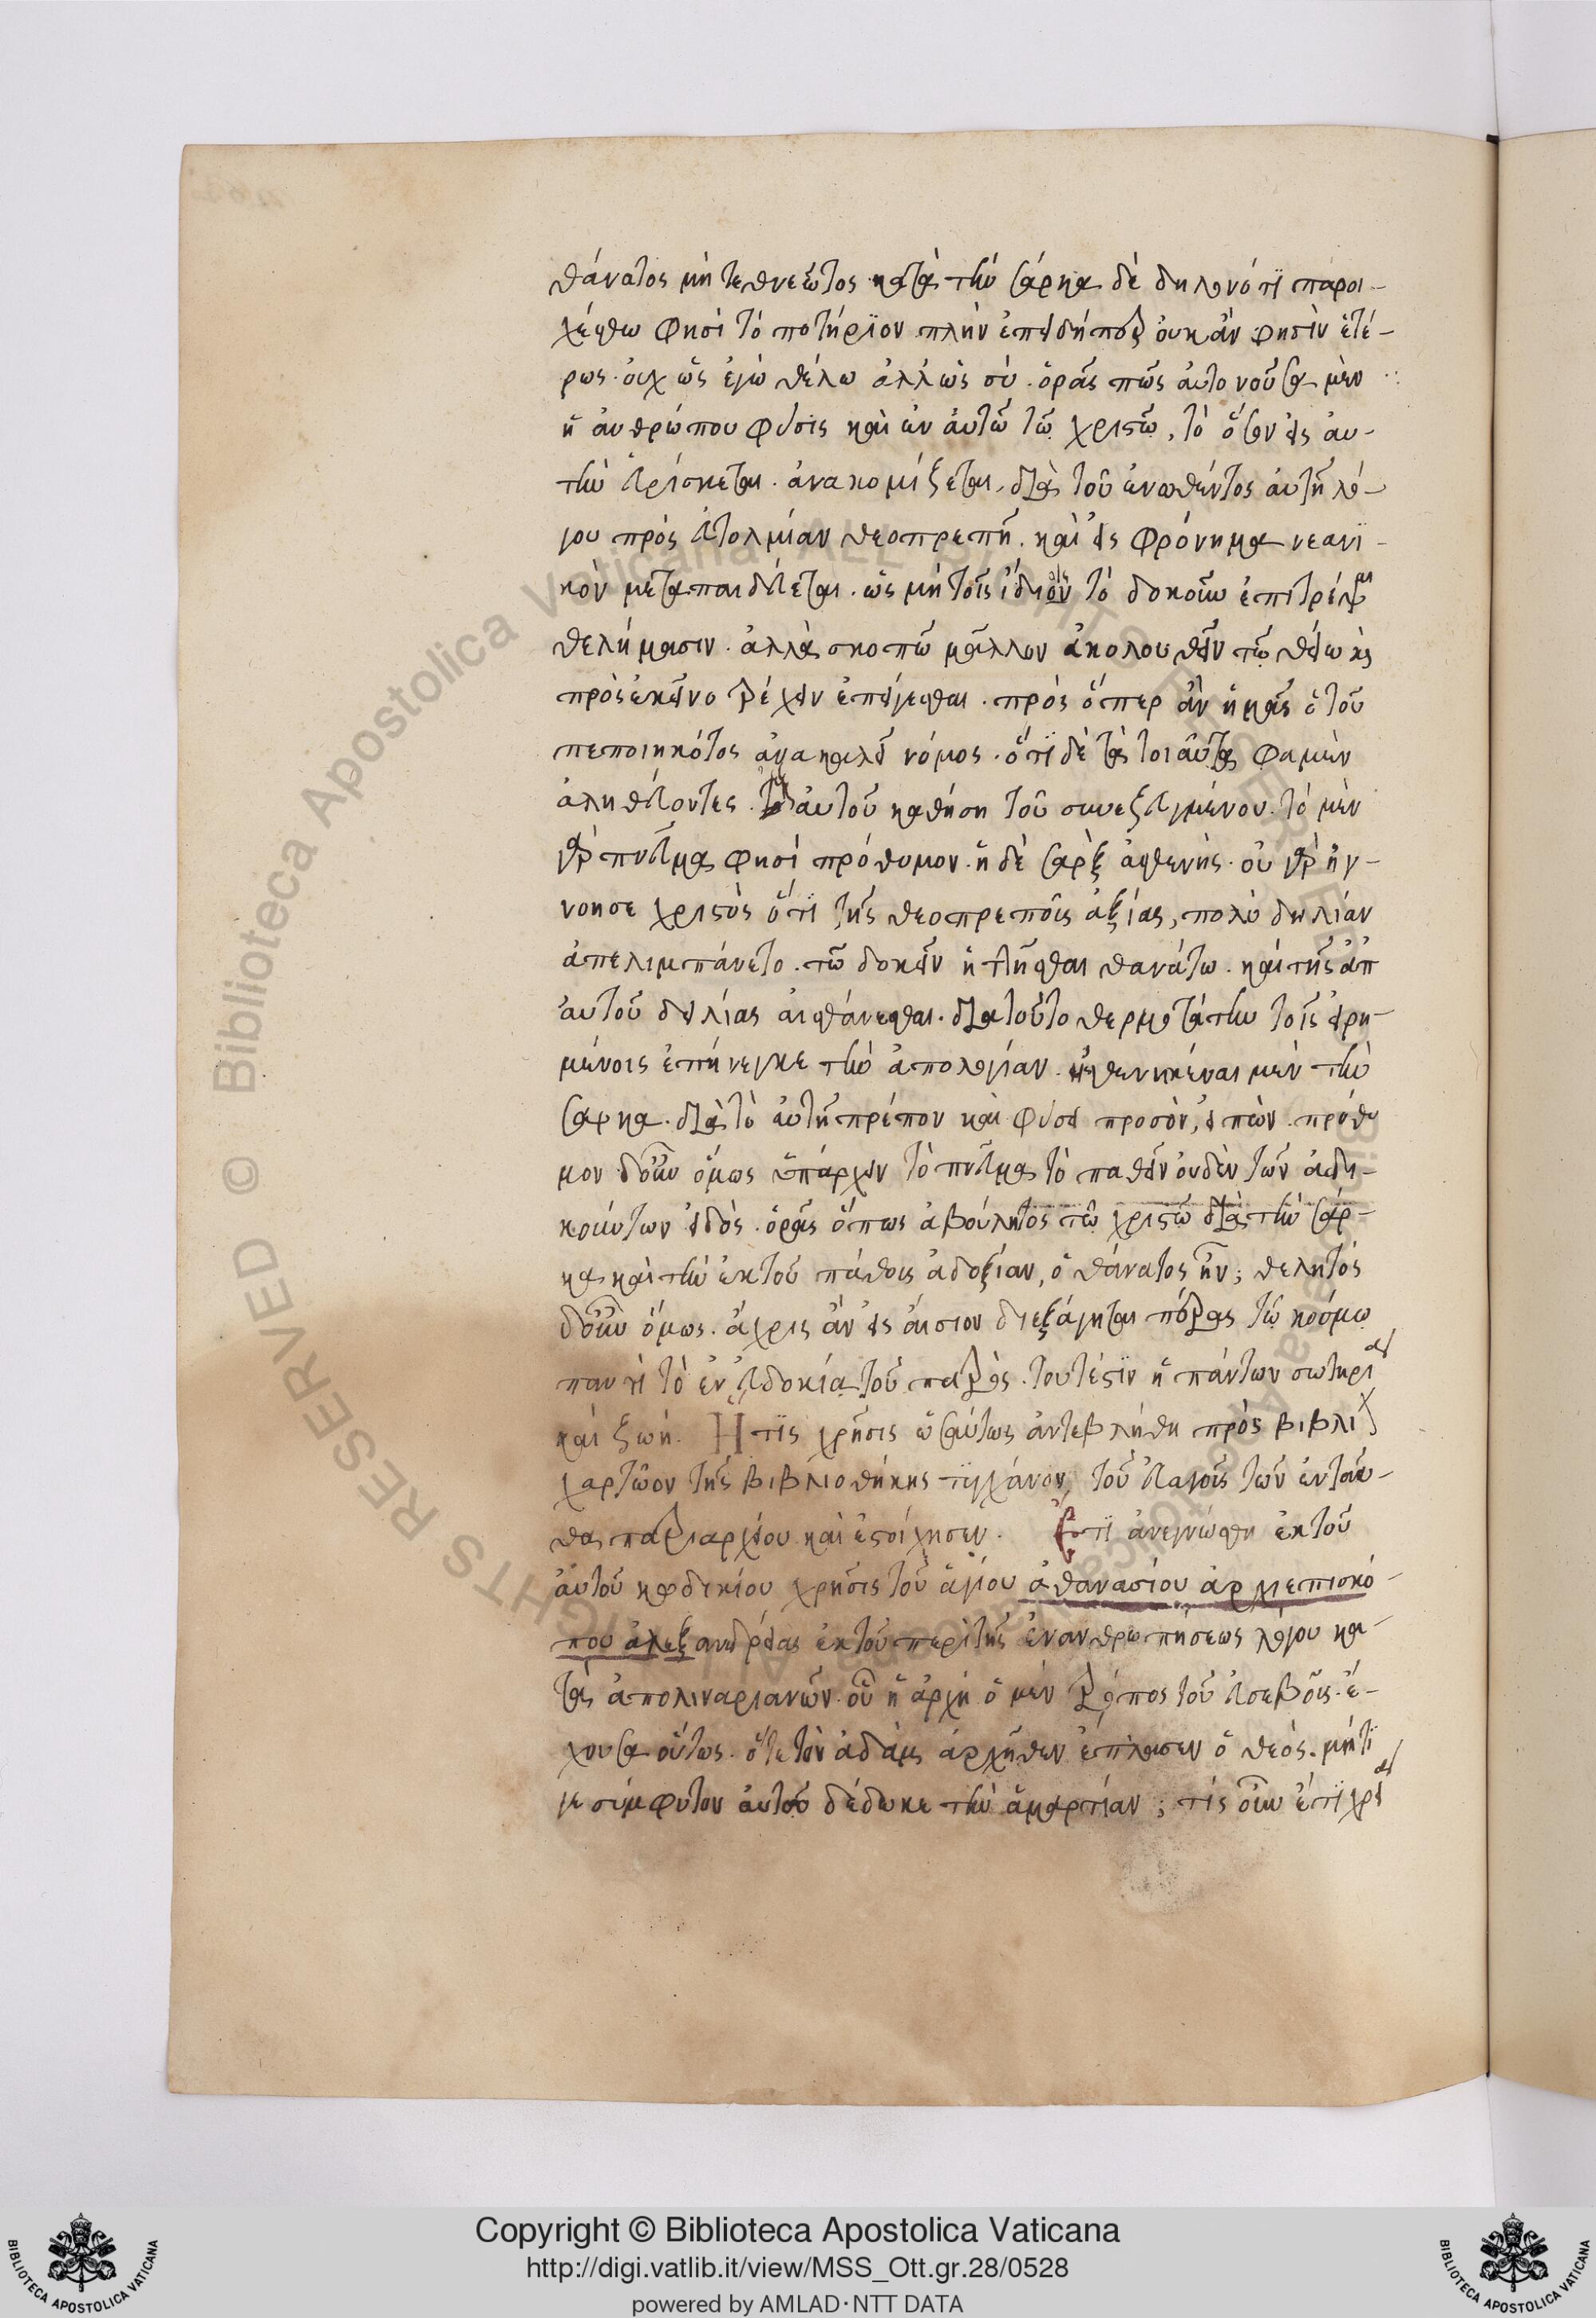 θάνατος μὴ τεθνεῶτος κατὰ τὴν σάρκα δὲ δηλονότι παροι-
χέσθω φησὶ τὸ ποτήριον πλὴν ἐπειδήπερ οὐκ ἂν φησὶν ἑτέ-
ρως. οὐχ ὡς ἐγὼ θέλω ἀλλ' ὡς σύ. ὁρᾶς πῶς ἀυτονοῦσα μὲν
ἡ ἀνθρώπου φύσις καὶ ἐν ἀυτῶ τῶ χριστῶ, τὸ ὅσον εἰς ἀυ-
τὴν εὑρίσκεται. ἀνακομίζεται, διὰ τοῦ ἑνωθέντος ἀυτῆ λό-
γου πρὸς εὐτολμίαν θεοπρεπῆ. καὶ εἰς φρόνημα νεανι-
κὸν μεταπαιδεύεται. ὡς μὴ τοῖς ἰδίοις τὸ δοκοῦν ἐπιτρέψαι
θελήμασιν. ἀλλὰ σκοπῶ μᾶλλον ἀκολουθεῖν τῶ θείω καὶ
πρὸς ἐκεῖνο τρέχειν ἐπείγεσθαι. πρὸς ὅπερ ἂν ἡμᾶς ὁ τοῦ
πεποιηκότος ἀνακαλεῖ νόμος. ὅτι δὲ τὰ τοιαῦτα φαμὲν
ἀληθεύοντες. ἀυτοῦ καθήση τοῦ συνεζευγμένου. τὸ μὲν
γὰρ πνεῦμα φησὶ πρόθυμον. ἡ δὲ σὰρξ ἀσθενής. οὐ γὰρ ἠγ-
νοησε χριστὸς ὅτι τῆς θεοπρεποῦς ἀξίας, πολὺ δηλίαν
ἀπελιμπάνετο. τῶ δοκεῖν ἡττῆσθαι θανάτω. καὶ τῆς ἀπ
ἀυτοῦ δειλίας αἰσθάνεσθαι. διατοῦτο θερμοτάτην τοῖς εἰρη-
μένοις ἐπήνεγκε τὴν ἀπολογίαν. ἠσθενηκέναι μὲν τὴν
σαρκα. διὰ τὸ ἀυτῆ πρέπον καὶ φύσει προσὸν, εἰπὼν. πρόθυ
μον δοῦν ὅμως ὑπάρχειν τὸ πνεῦμα τὸ παθεῖν οὐδὲν τῶν ἀδη-
κούντων εἰδὸς. ὁρᾶς ὅπως ἀβούλητος τῶ χριστῶ διὰ τὴν σάρ-
κα καὶ τὴν ἐκ τοῦ πάθους ἀδοξίαν, ὁ θάνατος ἦν; θελητός
δοῦν ὅμως. ἄχρις ἂν εἰς ἄισιον διεξάγηται πέρας τῶ κόσμω
παντὶ τὸ ἐν εὐδοκία τοῦ πατρός. τουτέστιν ἡ πάντων σωτηρία
καὶ ζωή. Ἥτις χρῆσις ὡσαύτως ἀντεβλήθη πρὸς βιβλί
χαρτῶον τῆς βιβλιοθήκης τυγχάνον, τοῦ εὐαγοῦς τῶν ἐνταῦ-
θα πατριαρχείου καὶ ἐστοίχησεν. Ἔτι ἀνεγνώσθη ἐκ τοῦ
ἀυτοῦ κωδικίου χρῆσις τοῦ ἁγίου ἀθανασίου ἀρχιεπισκό-
που ἀλεξανδρείας ἐκ τοῦ περὶ τῆς ἐνανθρωπήσεως λόγου κα-
τὰ ἀπολιναριανῶν. οὗ ἡ ἀρχὴ ὁ μὲν τρόπος τοῦ εὐσεβοῦς. ἔ-
χουσα οὕτως. ὅτε τὸν ἀδὰμ ἀρχῆθεν ἔπλασεν ὁ θεὸς. μήτι
γε σύμφυτον ἀυτοῦ δέδωκε τὴν ἁμαρτίαν; τίς οὖν ἔτι χρεία
Copyright © Biblioteca Apostolica Vaticana
http://digi.vatlib.it/view/MSS_Ott.gr.28/0528
powered by AMLAD·NTT DATA